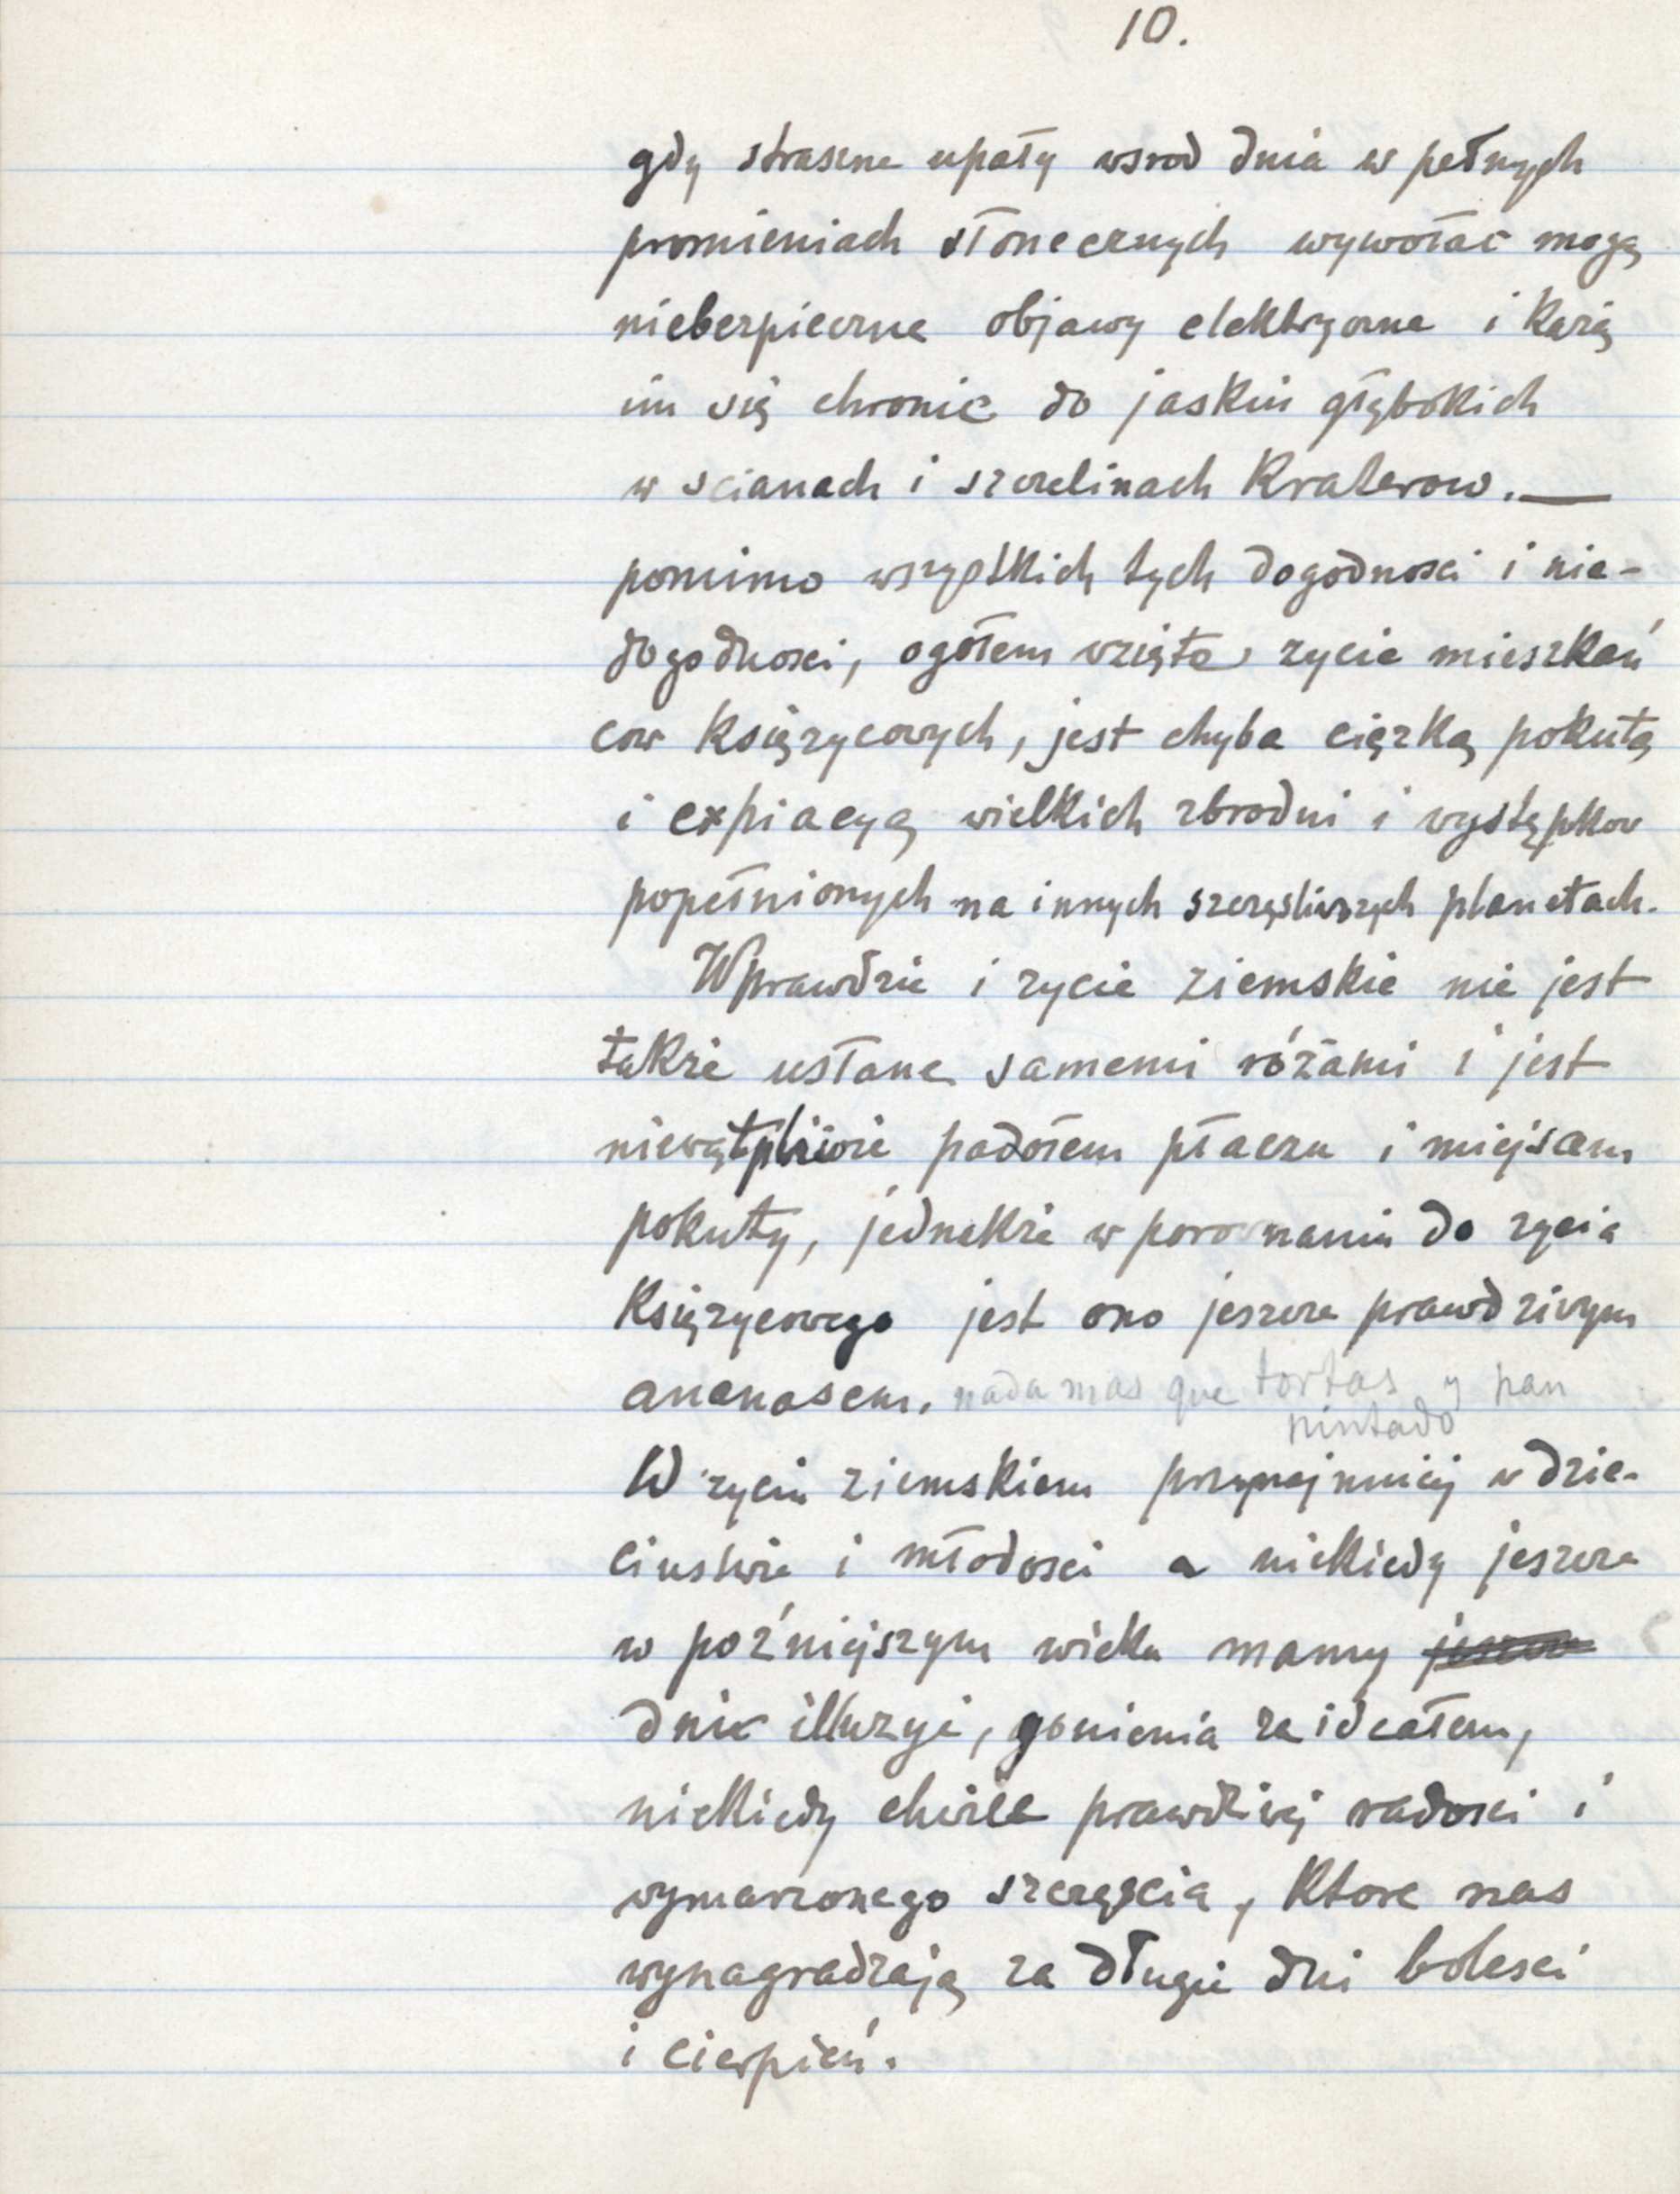 10.
gdy straszne upały wsrod dnia w pełnych
promieniach słonecznych wywołac mogą
niebezpieczne objawy elektryczne i każą
im się chronic do jaskin głębokich
w scianach i szczelinach Kraterow. —
pomimo wszystkich tych dogodnosci i nie-
dogodnosci, ogółem wzięte zycie mieszkań
cow Księzycowych, jest chyba cięzką pokutą
i expiacyą wielkich zbrodni i występkow
popełnionych na innych szczęsliwszych planetach.
Wprawdzie i zycie ziemskie nie jest
takze usłane samemi różami i jest
niewątpliwie padołem płaczu i miejscem
pokuty, jednakze w porownaniu do zycia
Księzycowego jest ono jeszcze prawdziwym
ananasem. nada mas que tortas y pan
pintado
W zyciu ziemskiem przynajmniej w dzie-
cinstwie i młodosci a niekiedy jeszcze
w poźniejszym wieku mamy jeszcze
dnie illuzyi, gonienia za ideałem,
niekiedy chwile prawdziwej radosci i
wymarzonego szczęscia, Ktore nas
wynagradzają za długie dni bolesci
i cierpień.